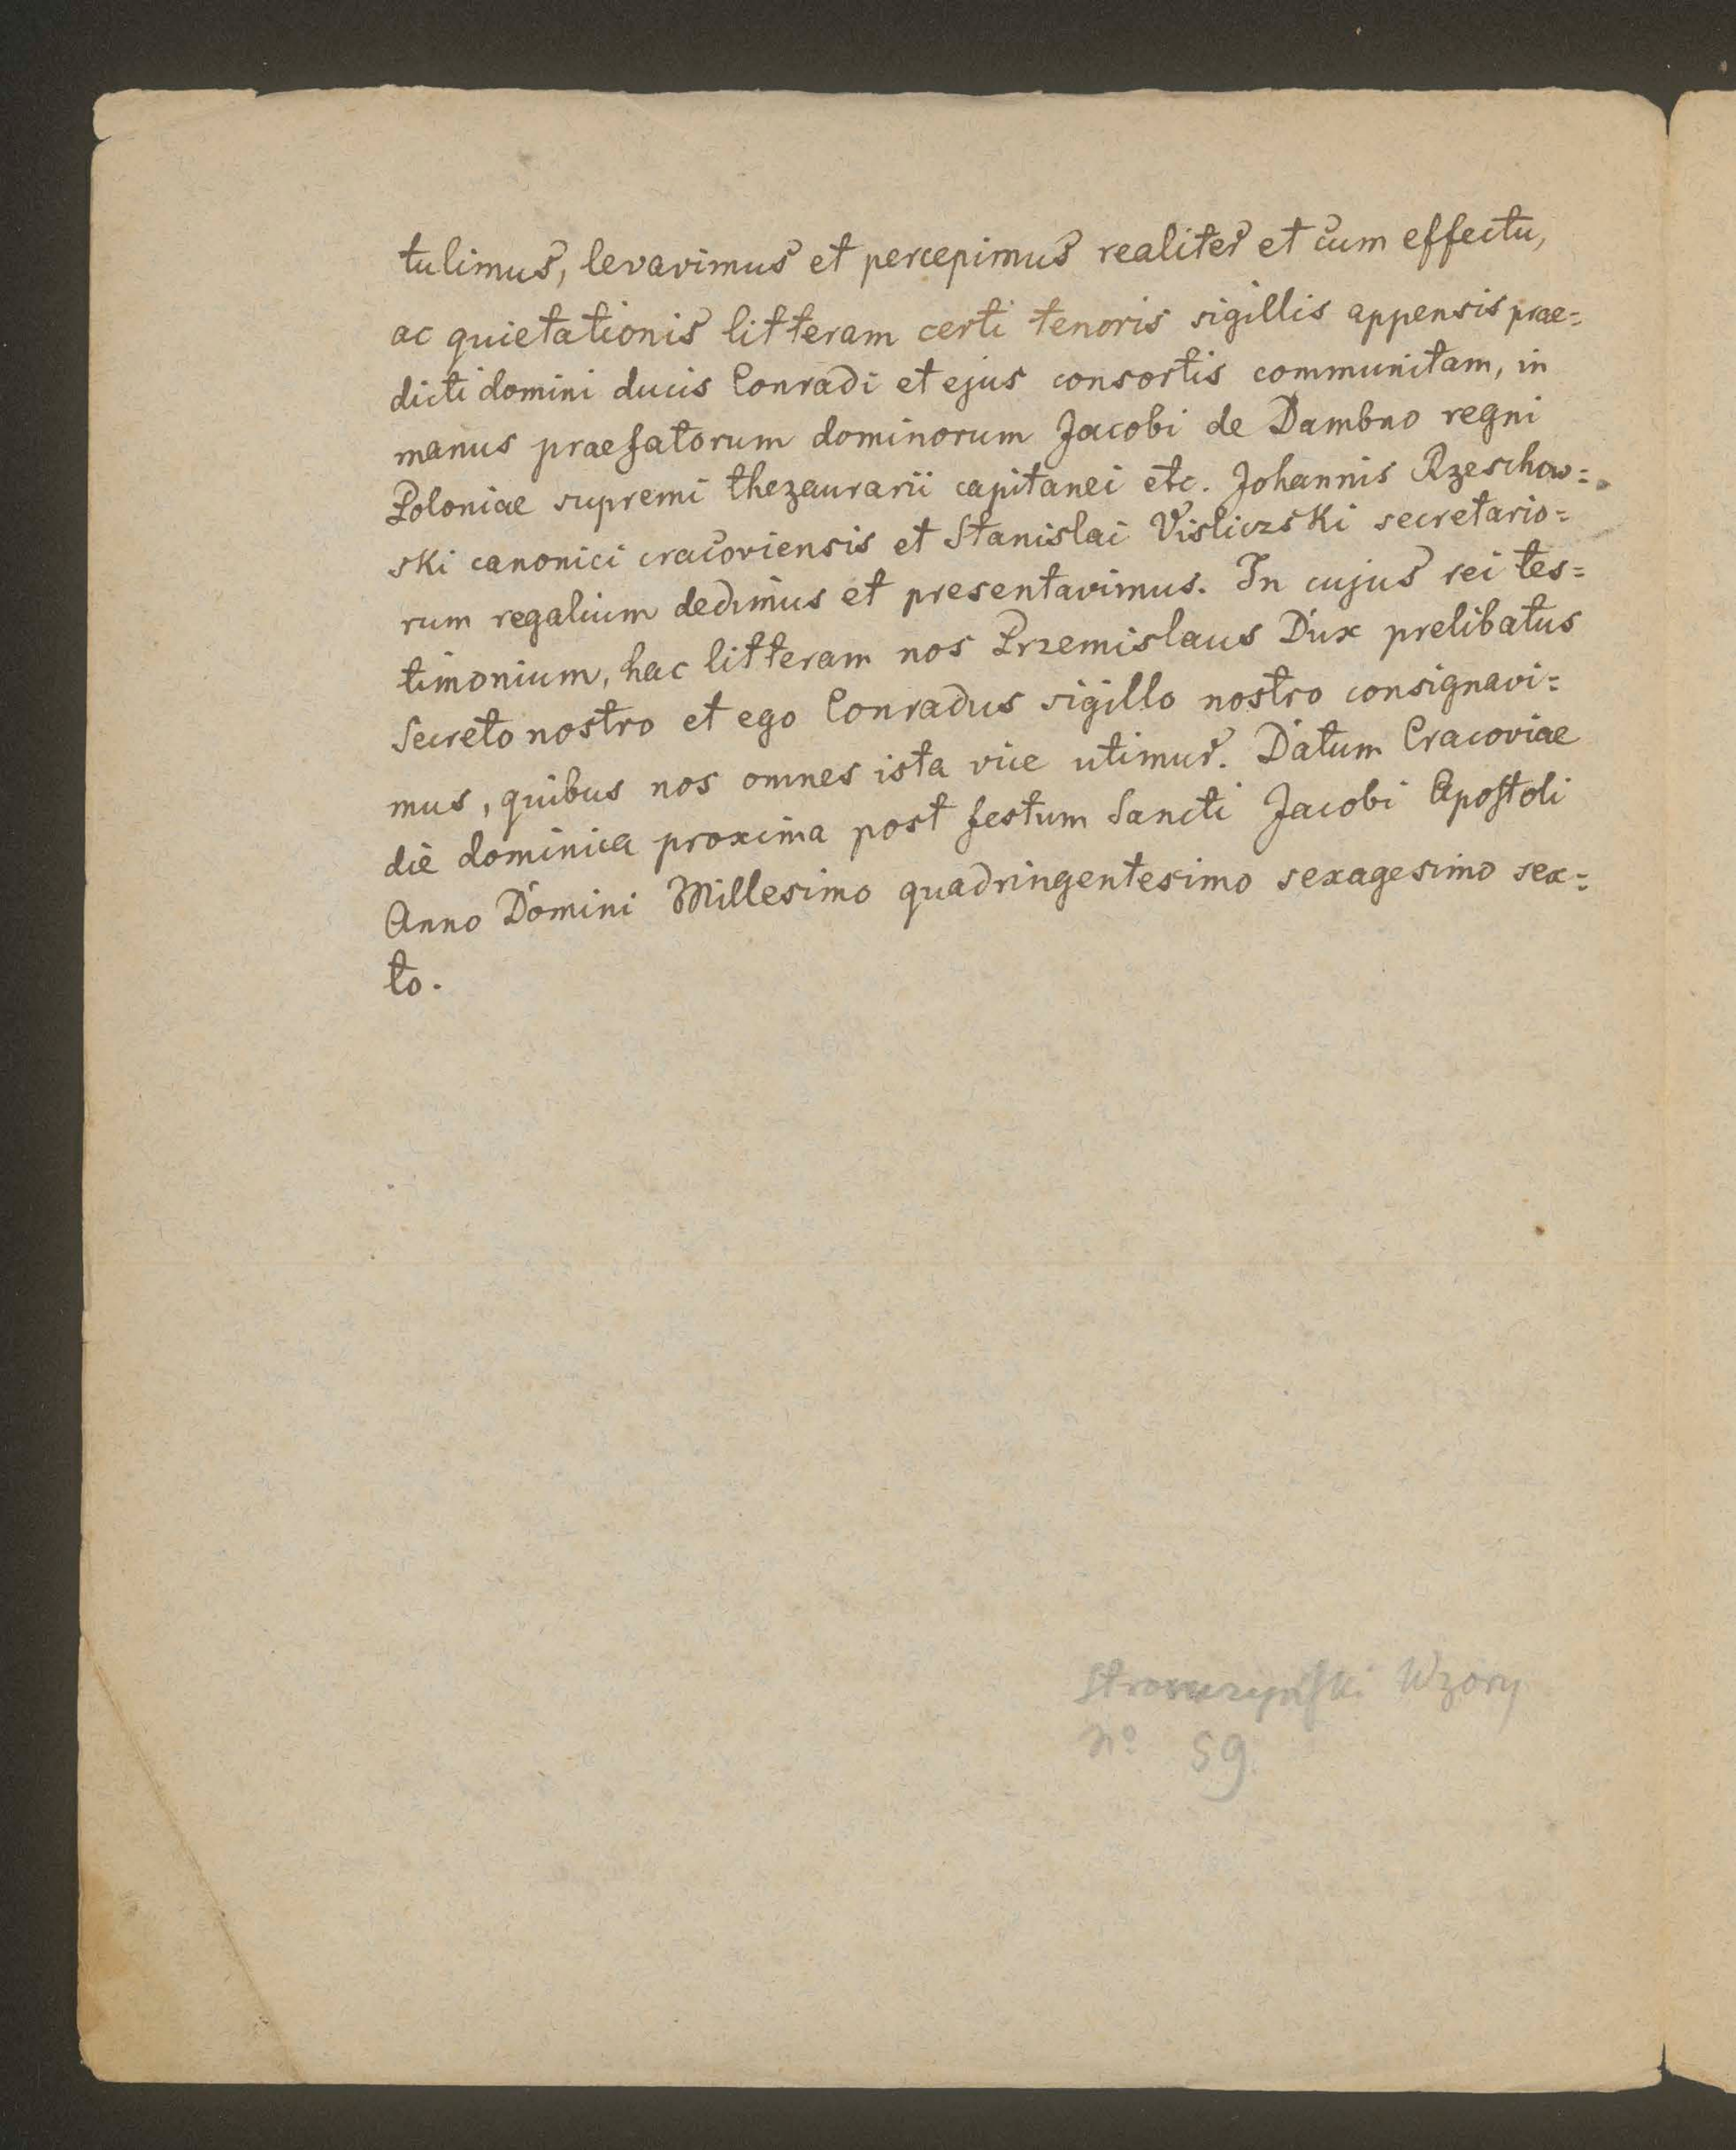 tulimus, levavimus et percepimus realiter et cum effectu,
ac quietationis litteram certi tenoris sigillis appensis prae=
dicti domini ducis Conradi et ejus consortis communitam, in
manus praefatorum dominorum Jacobi de Dambno regni
Poloniae supremi thezaurarii capitanei etc. Johannis Rzeschow=
ski canonici cracoviensis et Stanislai Visliczski secretario=
rum regalium dedimus et presentavimus. In cujus rei tes=
timonium, hac litteram nos Przemislaus Dux prelibatus
Secreto nostro et ego Conradus sigillo nostro consignavi=
mus, quibus nos omnes ista vice utimur. Datum Cracoviae
die dominica proxima post festum Sancti Jacobi Apostoli
Anno Domini Millesimo quadringentesimo sexagesimo sex=
to.
Stronczyński Wzory
no 59